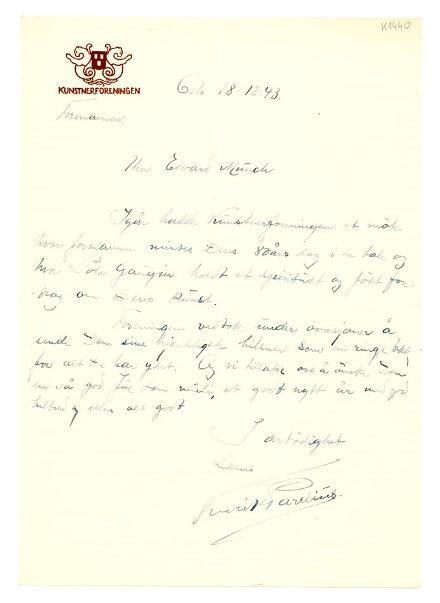 K1440
KUNSTNERFORENINGEN
Oslo 18.12.43.
Formannen.
Hr. Edvard Munch
Igår hadde Kunstnerforeningen et møte
hvor formannen mintes Deres 80års dag i en tale og
hvor Pola Gauguin holdt et spirituelt og følt fore-
drag om Deres kunst.
Foreningen vedtok under ovasjoner å
sende Dem sine hjerteligste hilsener som en ringe takk
for alt De har ydet. Og vi tillater oss å ønske Dem
en så god jul som mulig, et godt nytt år med god
helbred og ellers alt godt
I ærbødighet
Deres
Parelius.